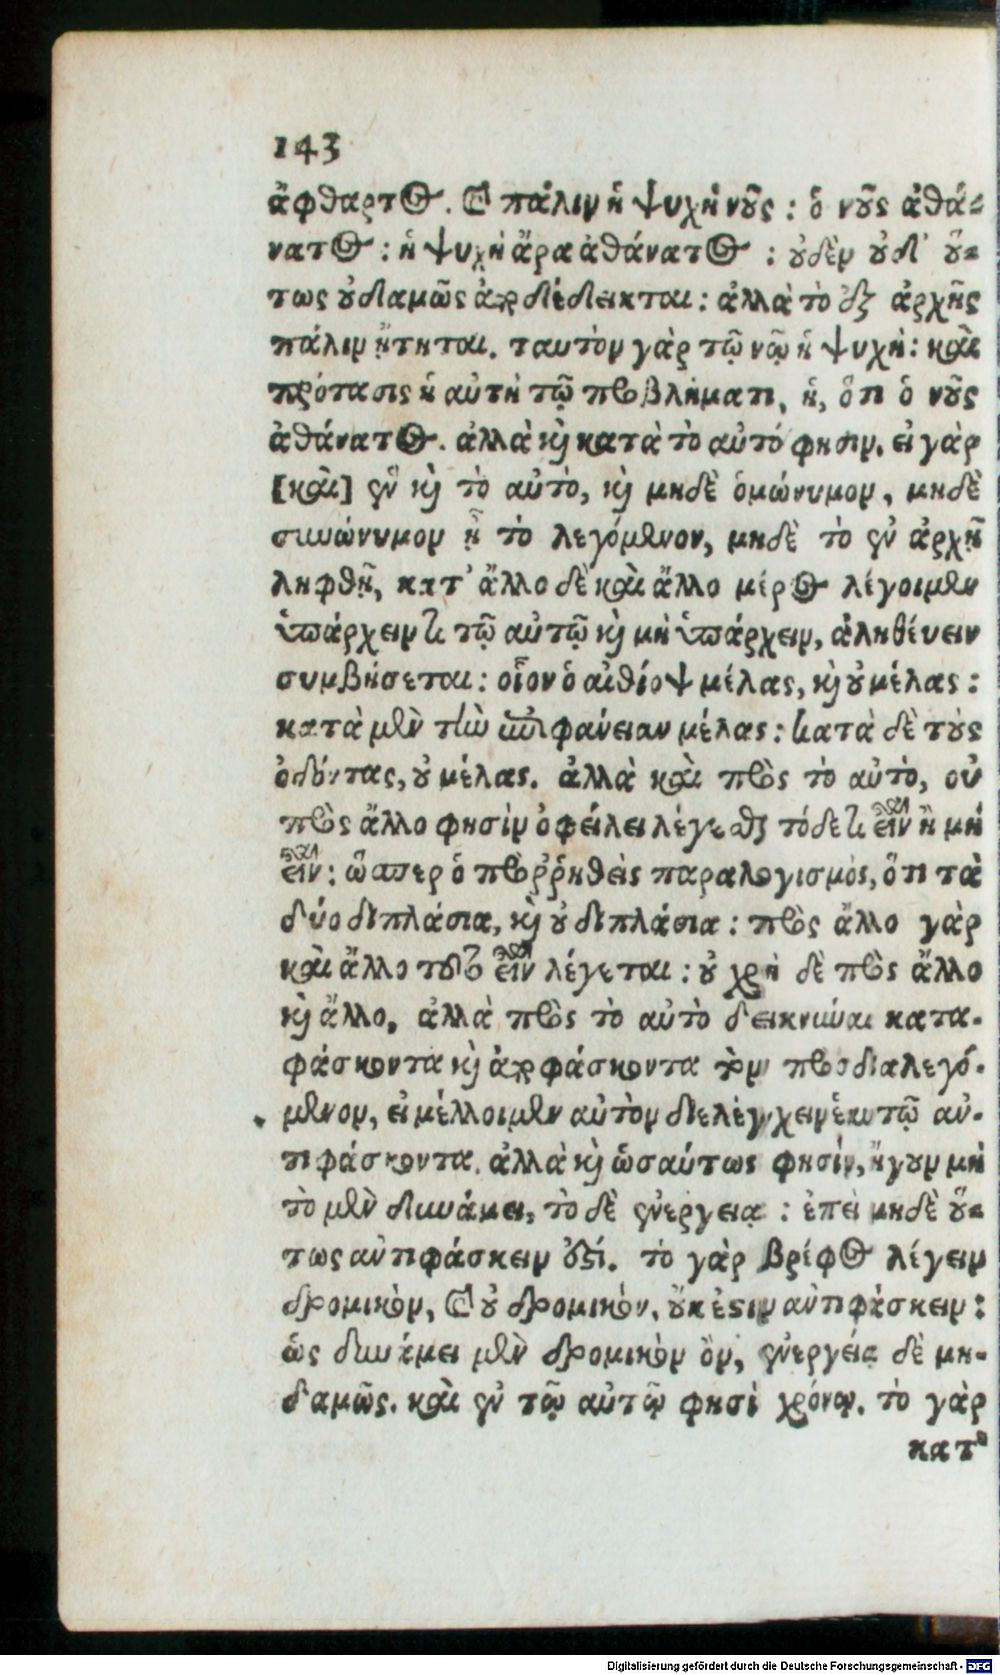 143
ἄφθαρτος. καὶ πάλιν ἡ ψυχὴ νοῦς: ὁ νοῦς ἀθά-
νατος: ἡ ψυχὴ ἄρα ἀθάνατος: οὐδὲν οὐδ' οὕ-
τως οὐδαμῶς ἀποδέδεικται: ἀλλὰ τὸ ἐξ ἀρχῆς
πάλιν ᾔτηται. ταυτὸν γὰρ τῷ νῷ ἡ ψυχή: καὶ
πρότασις ἡ αὐτὴ τῷ προβλήματι, ἡ, ὅτι ὁ νοῦς
ἀθάνατος. ἀλλὰ καὶ κατὰ τὸ αὐτό φησιν. εἰ γὰρ
[καὶ] ἓν καὶ τὸ αὐτὸ, καὶ μηδὲ ὁμώνυμον, μηδὲ
συνώνυμον ᾖ τὸ λεγόμενον, μηδὲ τὸ ἐν ἀρχῇ
ληφθῇ, κατ' ἄλλο δὲ καὶ ἄλλο μέρος λέγοιμεν
ὑπάρχειν τι τῷ αὐτῷ καὶ μὴ ὑπάρχειν, ἀληθεύειν
συμβήσεται: οἷον ὁ αἰθίοψ μέλας, καὶ οὐ μέλας:
κατὰ μὲν τὴν ἐπιφάνειαν μέλας: κατὰ δὲ τοὺς
ὀδόντας, οὐ μέλας. ἀλλὰ καὶ πρὸς τὸ αὐτὸ, οὐ
πρὸς ἄλλο φησὶν ὀφείλει λέγεσθαι τόδε τι εἶναι ἢ μὴ
εἶναι: ὥσπερ ὁ προῤῥηθεὶς παραλογισμὸς, ὅτι τὰ
δύο διπλάσια, καὶ οὐ διπλάσια: πρὸς ἄλλο γὰρ
καὶ ἄλλο τοῦτο εἶναι λέγεται: οὐ χρὴ δὲ πρὸς ἄλλο
καὶ ἄλλο, ἀλλὰ πρὸς τὸ αὐτὸ δεικνύναι κατα-
φάσκοντα καὶ ἀποφάσκοντα τὸν προσδιαλεγό-
μενον, εἰ μέλλοιμεν αὐτὸν διελέγχειν ἑαυτῷ ἀν-
τιφάσκοντα. ἀλλὰ καὶ ὡσαύτως φησίν, ἤγουν μὴ
τὸ μὲν δυνάμει, τὸ δὲ ἐνεργείᾳ: ἐπεὶ μηδὲ οὕ-
τως ἀντιφάσκειν ἐστί. τὸ γὰρ βρέφος λέγειν
δρομικὸν, καὶ οὐ δρομικὸν, οὐκ ἔστιν ἀντιφάσκειν:
ὡς δυνάμει μὲν δρομικὸν ὂν, ἐνεργείᾳ δὲ μη-
δαμῶς. καὶ ἐν τῷ αὐτῷ φησὶ χρόνῳ. τὸ γὰρ
κατὰ
Digitalisierung gefördert durch die Deutsche Forschungsgemeinschaft - DFG